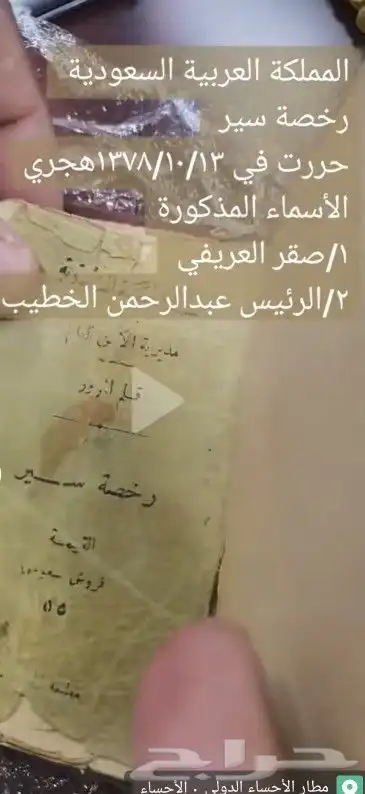 المملكة العربية السعودية
رخصة سير
حررت في ١٣٧٨/١٠/١٣هجري
الأسماء المذكورة
١/صقر العريفي
٢/الرئيس عبدالرحمن الخطيب
مديرية الأمن العام
قلم المرور
رخصة ســير
القيمة
قروش سعودي
٥٥
حراج
مطار الأحساء الدولي . الأحساء